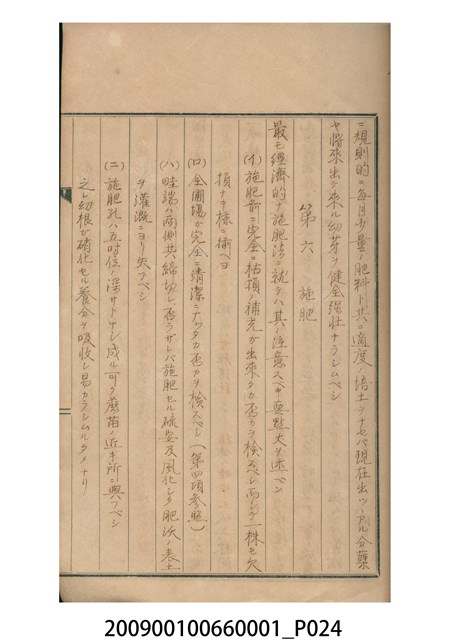 ニ規則的ニ毎月少量ノ肥料ト共ニ適度ノ培土ヲナセバ現在出ツヽアル分蘖
ヤ將來出テ來ル幼芽ヲ健全强壮ナラシムベシ
第六 施肥
最モ經濟的ナ施肥法ニ就テハ其ノ注意スベキ要點次ニ述ベン
(イ)施肥前ニ完全ニ枯損ノ補充ガ出來タカ否カヲ檢スベシ而シテ一株モ欠
損ナキ樣ニ揃ヘヨ
(ロ)全圃場ガ完全ニ清潔ニナッタカ否カヲ檢スベシ(第四項參照)
(ハ)畦端ハ兩側共締切レ否ラザレバ施肥セル硫安及風化シタ肥沃ノ表土
ヲ灌漑ニヨリ失フベシ
(ニ)施肥孔ハ五吋位ノ深サトナシ成ル可ク蔗苗ノ近キ所ニ與フベシ
之レ幼根ガ硝化セル養分ヲ吸收シ易カラシムルタメナリ
200900100660001_P024